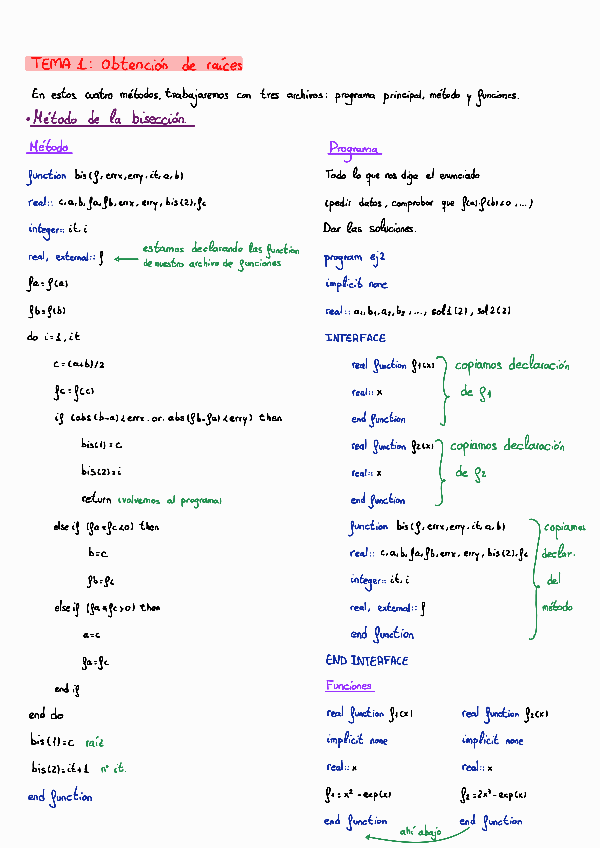 TEMA 1: Obtención de raíces
En estos cuatro métodos, trabajaremos con tres archivos: programa principal, método y funciones.
• Método de la bisección
Método
function bis(f, errx, erry, it, a, b)
real:: c, a, b, fa, fb, errx, erry, bis(2), fc
integer:: it, i
real, external:: f ← estamos declarando las function
de nuestro archivo de funciones
fa = f(a)
fb = f(b)
do i=1, it
c = (a+b)/2
fc = f(c)
if (abs(b-a)<errx .or. abs(fb-fa)<erry) then
bis(1) = c
bis(2) = i
return (volvemos al programa)
else if (fa*fc<0) then
b=c
fb=fc
else if (fa*fc>0) then
a=c
fa=fc
end if
end do
bis(1)=c raíz
bis(2)=it+1 nº it.
end function
Programa
Todo lo que nos diga el enunciado
(pedir datos, comprobar que f(a)·f(b)<0, ...)
Dar las soluciones.
program ej2
implicit none
real:: a1, b1, a2, b2, ..., sol1(2), sol2(2)
INTERFACE
real function f1(x) copiamos declaración
real:: x de f1
end function
real function f2(x) copiamos declaración
real:: x de f2
end function
function bis(f, errx, erry, it, a, b) copiamos
real:: c, a, b, fa, fb, errx, erry, bis(2), fc declar.
integer:: it, i del
real, external:: f método
end function
END INTERFACE
Funciones
real function f1(x) real function f2(x)
implicit none implicit none
real:: x real:: x
f1 = x² - exp(x) f2 = 2x³ - exp(x)
end function end function
ahí abajo